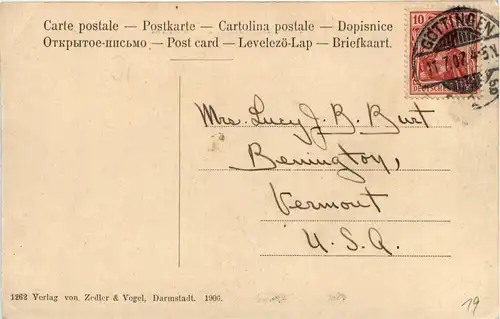 Carte postale — Postkarte — Cartolina postale — Dopisnice
Открытое-письмо — Post card — Levelező-Lap — Briefkaart.
10
GÖTTINGEN
Mrs. Lucy J. B. Burt
Benington,
Vermont
U.S.A.
1262 Verlag von Zedler & Vogel, Darmstadt. 1906.
19